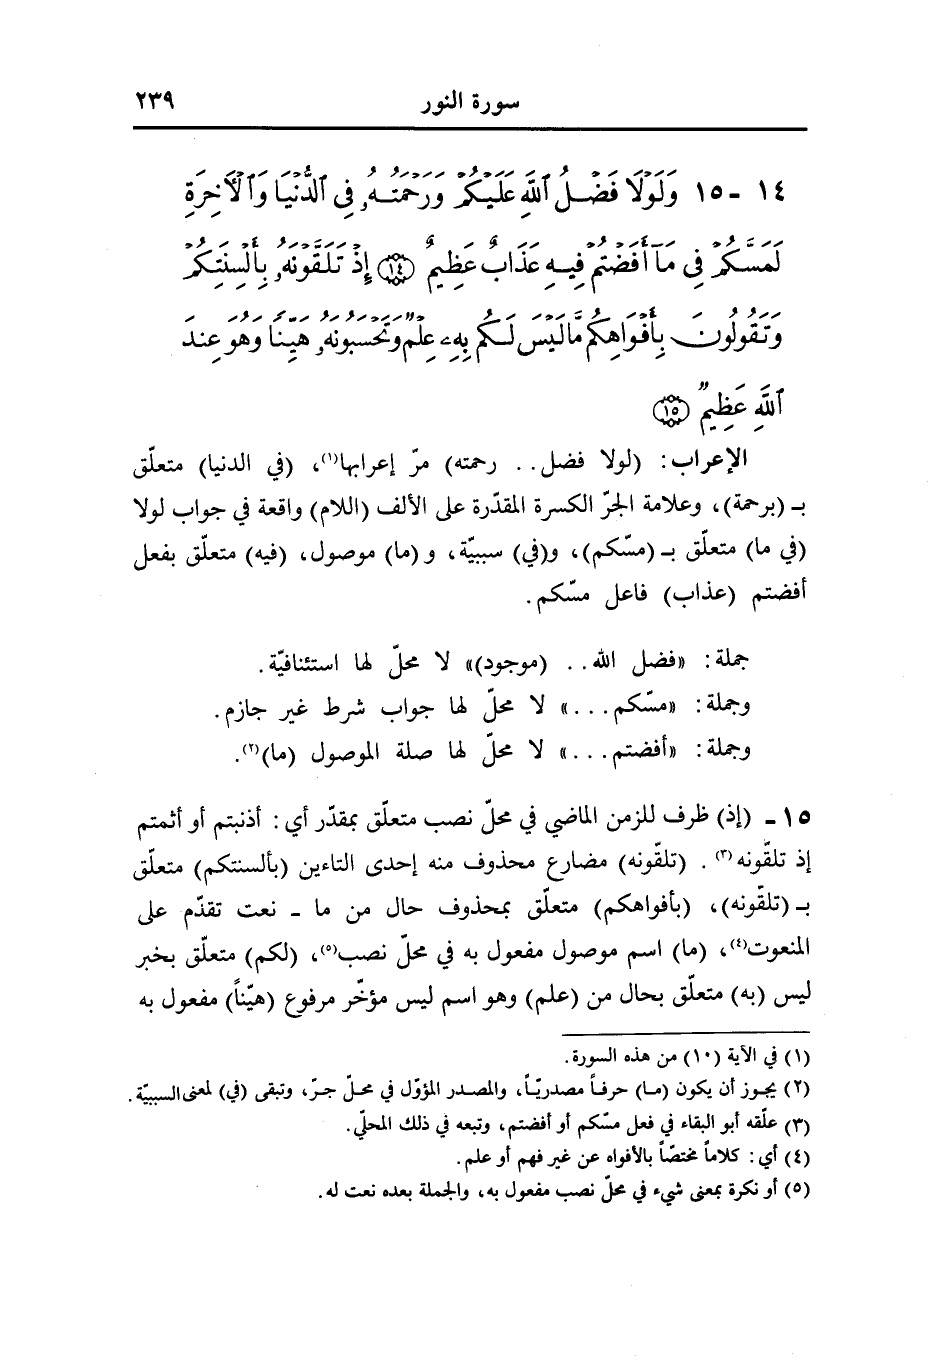 سورة النور ٢٣٩
١٤ - ١٥ وَلَوْلَا فَضْلُ ٱللَّهِ عَلَيْكُمْ وَرَحْمَتُهُۥ فِى ٱلدُّنْيَا وَٱلْأَخِرَةِ
لَمَسَّكُمْ فِى مَآ أَفَضْتُمْ فِيهِ عَذَابٌ عَظِيمٌ ﴿١٤﴾ إِذْ تَلَقَّوْنَهُۥ بِأَلْسِنَتِكُمْ
وَتَقُولُونَ بِأَفْوَاهِكُم مَّا لَيْسَ لَكُم بِهِۦ عِلْمٌ وَتَحْسَبُونَهُۥ هَيِّنًا وَهُوَ عِندَ
ٱللَّهِ عَظِيمٌ ﴿١٥﴾
الإعراب: (لولا فضل.. رحمته) مرّ إعرابها(١)، (في الدنيا) متعلّق
بـ (برحمة)، وعلامة الجرّ الكسرة المقدّرة على الألف (اللام) واقعة في جواب لولا
(في ما) متعلّق بـ (مسّكم)، و(في) سببيّة، و (ما) موصول، (فيه) متعلّق بفعل
أفضتم (عذاب) فاعل مسّكم.
جملة: «فضل الله.. (موجود)» لا محلّ لها استئنافيّة.
وجملة: «مسّكم...» لا محلّ لها جواب شرط غير جازم.
وجملة: «أفضتم...» لا محلّ لها صلة الموصول (ما)(٢).
١٥ - (إذ) ظرف للزمن الماضي في محلّ نصب متعلّق بمقدّر أي: أذنبتم أو أثمتم
إذ تلقّونه(٣). (تلقّونه) مضارع محذوف منه إحدى التاءين (بألسنتكم) متعلّق
بـ (تلقّونه)، (بأفواهكم) متعلّق بمحذوف حال من ما - نعت تقدّم على
المنعوت(٤)، (ما) اسم موصول مفعول به في محلّ نصب(٥)، (لكم) متعلّق بخبر
ليس (به) متعلّق بحال من (علم) وهو اسم ليس مؤخّر مرفوع (هيّناً) مفعول به
(١) في الآية (١٠) من هذه السورة.
(٢) يجوز أن يكون (ما) حرفاً مصدريّاً، والمصدر المؤوّل في محلّ جرّ، وتبقى (في) لمعنى السببيّة.
(٣) علّقه أبو البقاء في فعل مسّكم أو أفضتم، وتبعه في ذلك المحلّي.
(٤) أي: كلاماً مختصّاً بالأفواه عن غير فهم أو علم.
(٥) أو نكرة بمعنى شيء في محلّ نصب مفعول به، والجملة بعده نعت له.